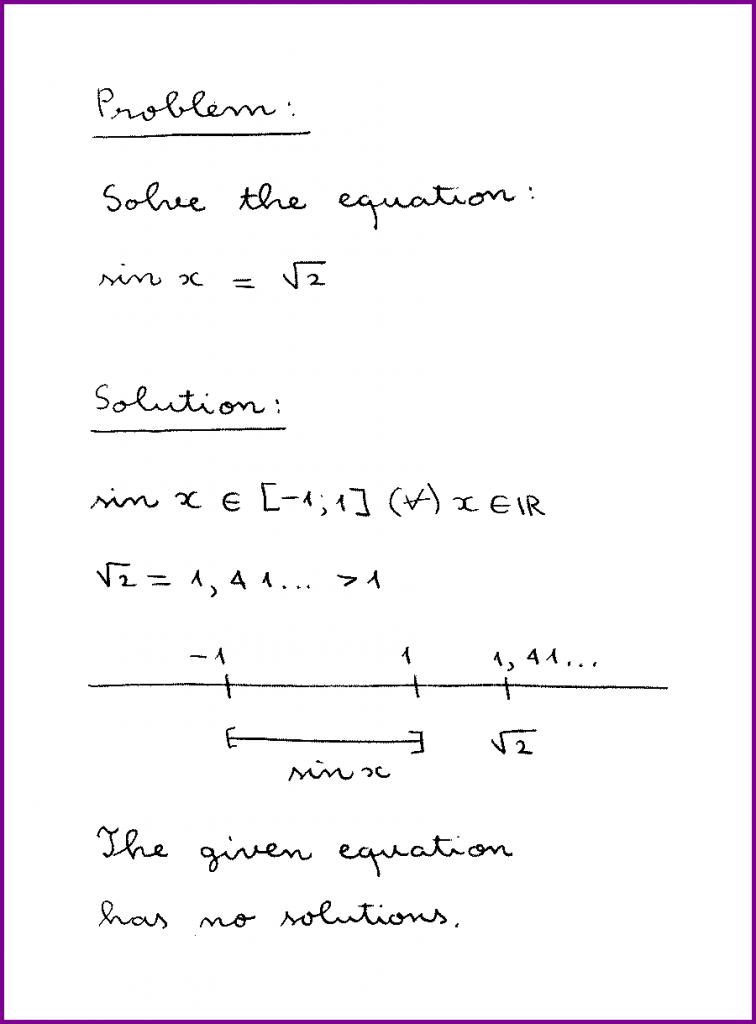 Problem:
Solve the equation:
sin x = √2
Solution:
sin x ∈ [-1;1] (∀) x ∈ ℝ
√2 = 1,41... > 1
-1 1 1,41...
[ ] √2
sin x
The given equation
has no solutions.